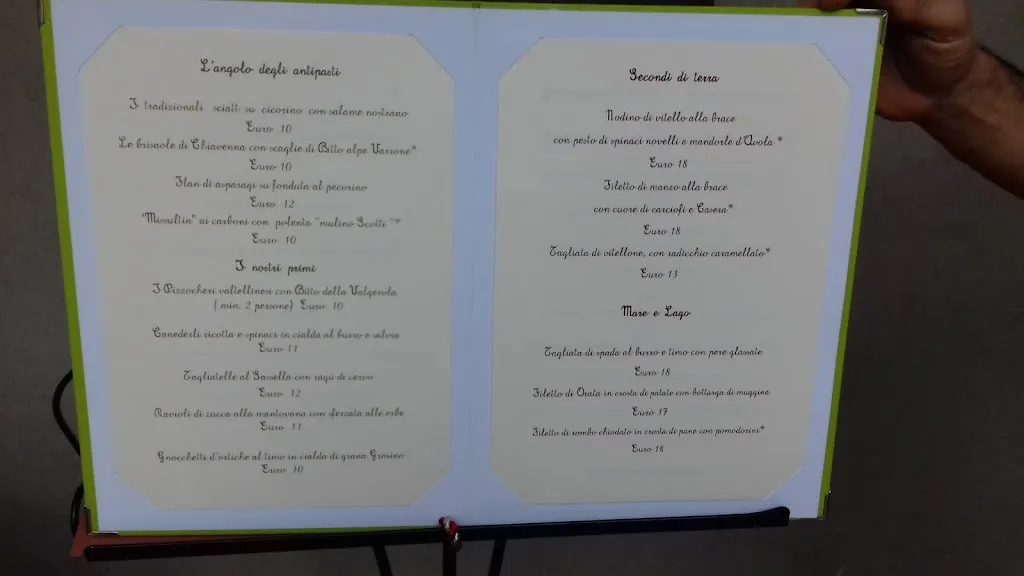 L'angolo degli antipasti
I tradizionali sciatt su cicorino con salame nostrano
Euro 10
Le brisaole di Chiavenna con scaglie di Bitto alpe Varrone*
Euro 10
Flan di asparagi su fonduta al pecorino
Euro 12
"Missultin" ai carboni con polenta "mulino Scotti"*
Euro 10
I nostri primi
I Pizzocheri valtellinesi con Bitto della Valgerola
(min. 2 persone) Euro 10
Canederli ricotta e spinaci in cialda al burro e salvia
Euro 11
Tagliatelle al Sassella con ragù di cervo
Euro 12
Ravioli di zucca alla mantovana con sferzata alle erbe
Euro 11
Gnocchetti d'ortiche al timo in cialda di grana Grosino
Euro 10
Secondi di terra
Nodino di vitello alla brace
con pesto di spinaci novelli e mandorle d'Avola *
Euro 18
Filetto di manzo alla brace
con cuore di carciofi e Casera*
Euro 18
Tagliata di vitellone, con radicchio caramellato*
Euro 13
Mare e Lago
Tagliata di spada al burro e timo con pere glassate
Euro 18
Filetto di Orata in crosta di patate con bottarga di muggine
Euro 17
Filetto di rombo chiodato in crosta di pane con pomodorini*
Euro 18